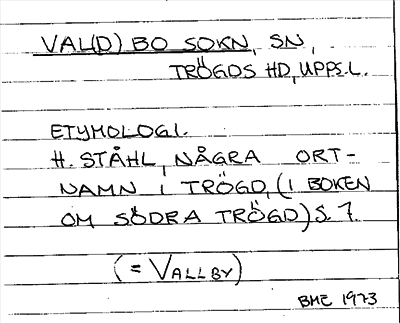 VAL(D) BO SOKN, SN,
TRÖGDS HD, UPPS.L.
ETYMOLOGI.
H. STÅHL, NÅGRA ORT-
NAMN I TRÖGD, (I BOKEN
OM SÖDRA TRÖGD) S. 7.
(= VALLBY)
BME 1973